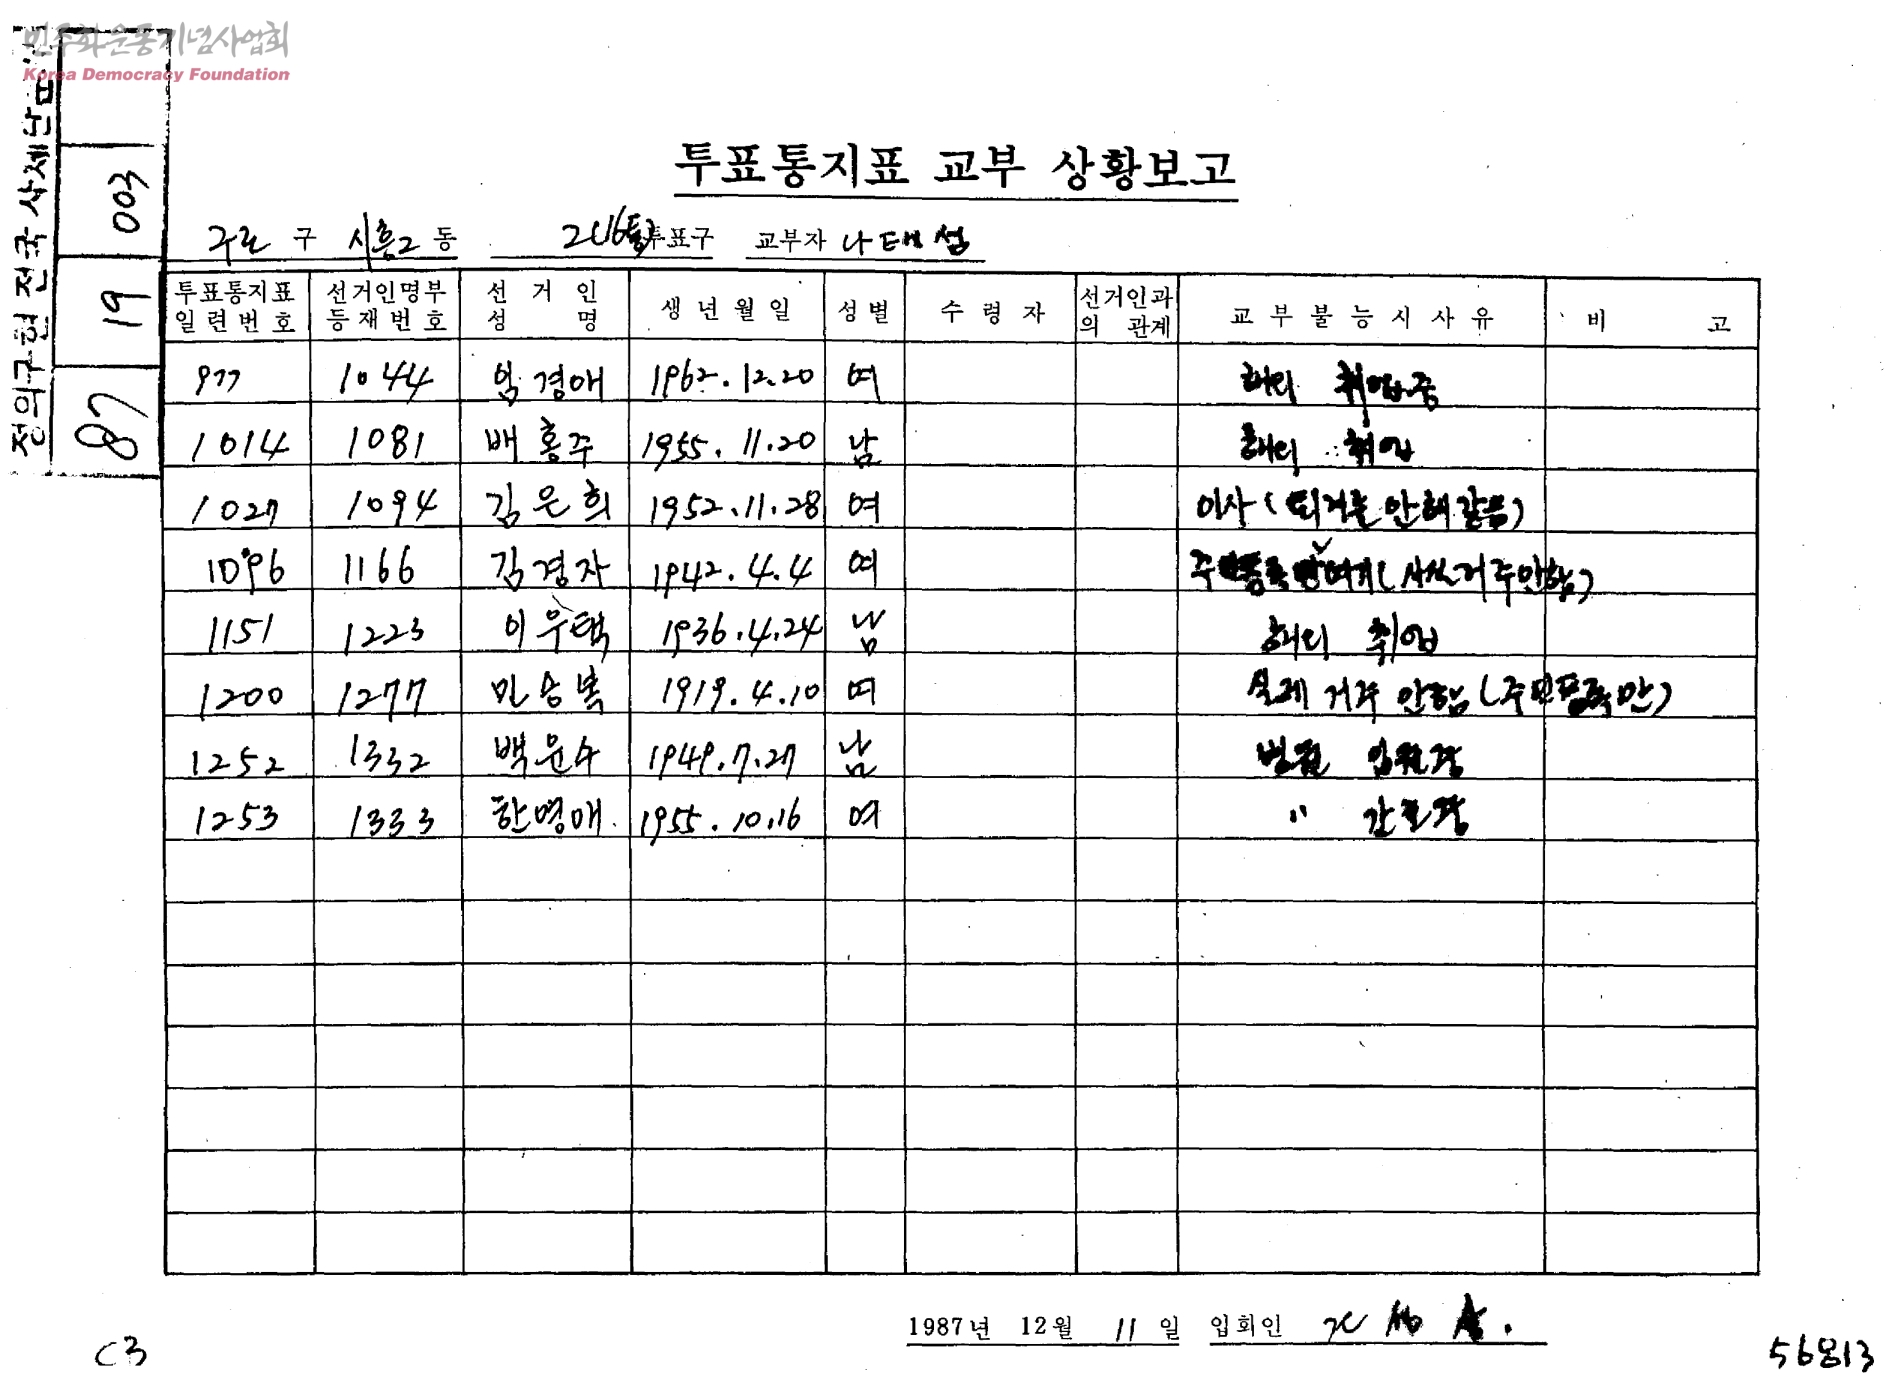 민주화운동기념사업회
Korea Democracy Foundation
정의구현 전국 사제단
87 19 003
투표통지표 교부 상황보고
구로 구 시흥2 동 투표구 교부자 나태섭
투표통지표 일련번호 선거인명부 등재번호 선거인 성명 생년월일 성별 수령자 선거인과의 관계 교부불능시사유 비고
977 1044 엄경애 1962.12.20 여 해외 취업중
1014 1081 배홍주 1955.11.20 남 해외 취업
1027 1094 김은희 1952.11.28 여 이사 (퇴거를 안해갔음)
1096 1166 김경자 1942.4.4 여
1151 1223 이우택 1936.4.24 남 해외 취업
1200 1277 민승복 1919.4.10 여 실제 거주 안함 (주민등록만)
1252 1332 백운수 1949.7.27 남 병원 입원중
1253 1333 한명애 1955.10.16 여 〃 간호중
1987년 12월 11일 입회인
C3